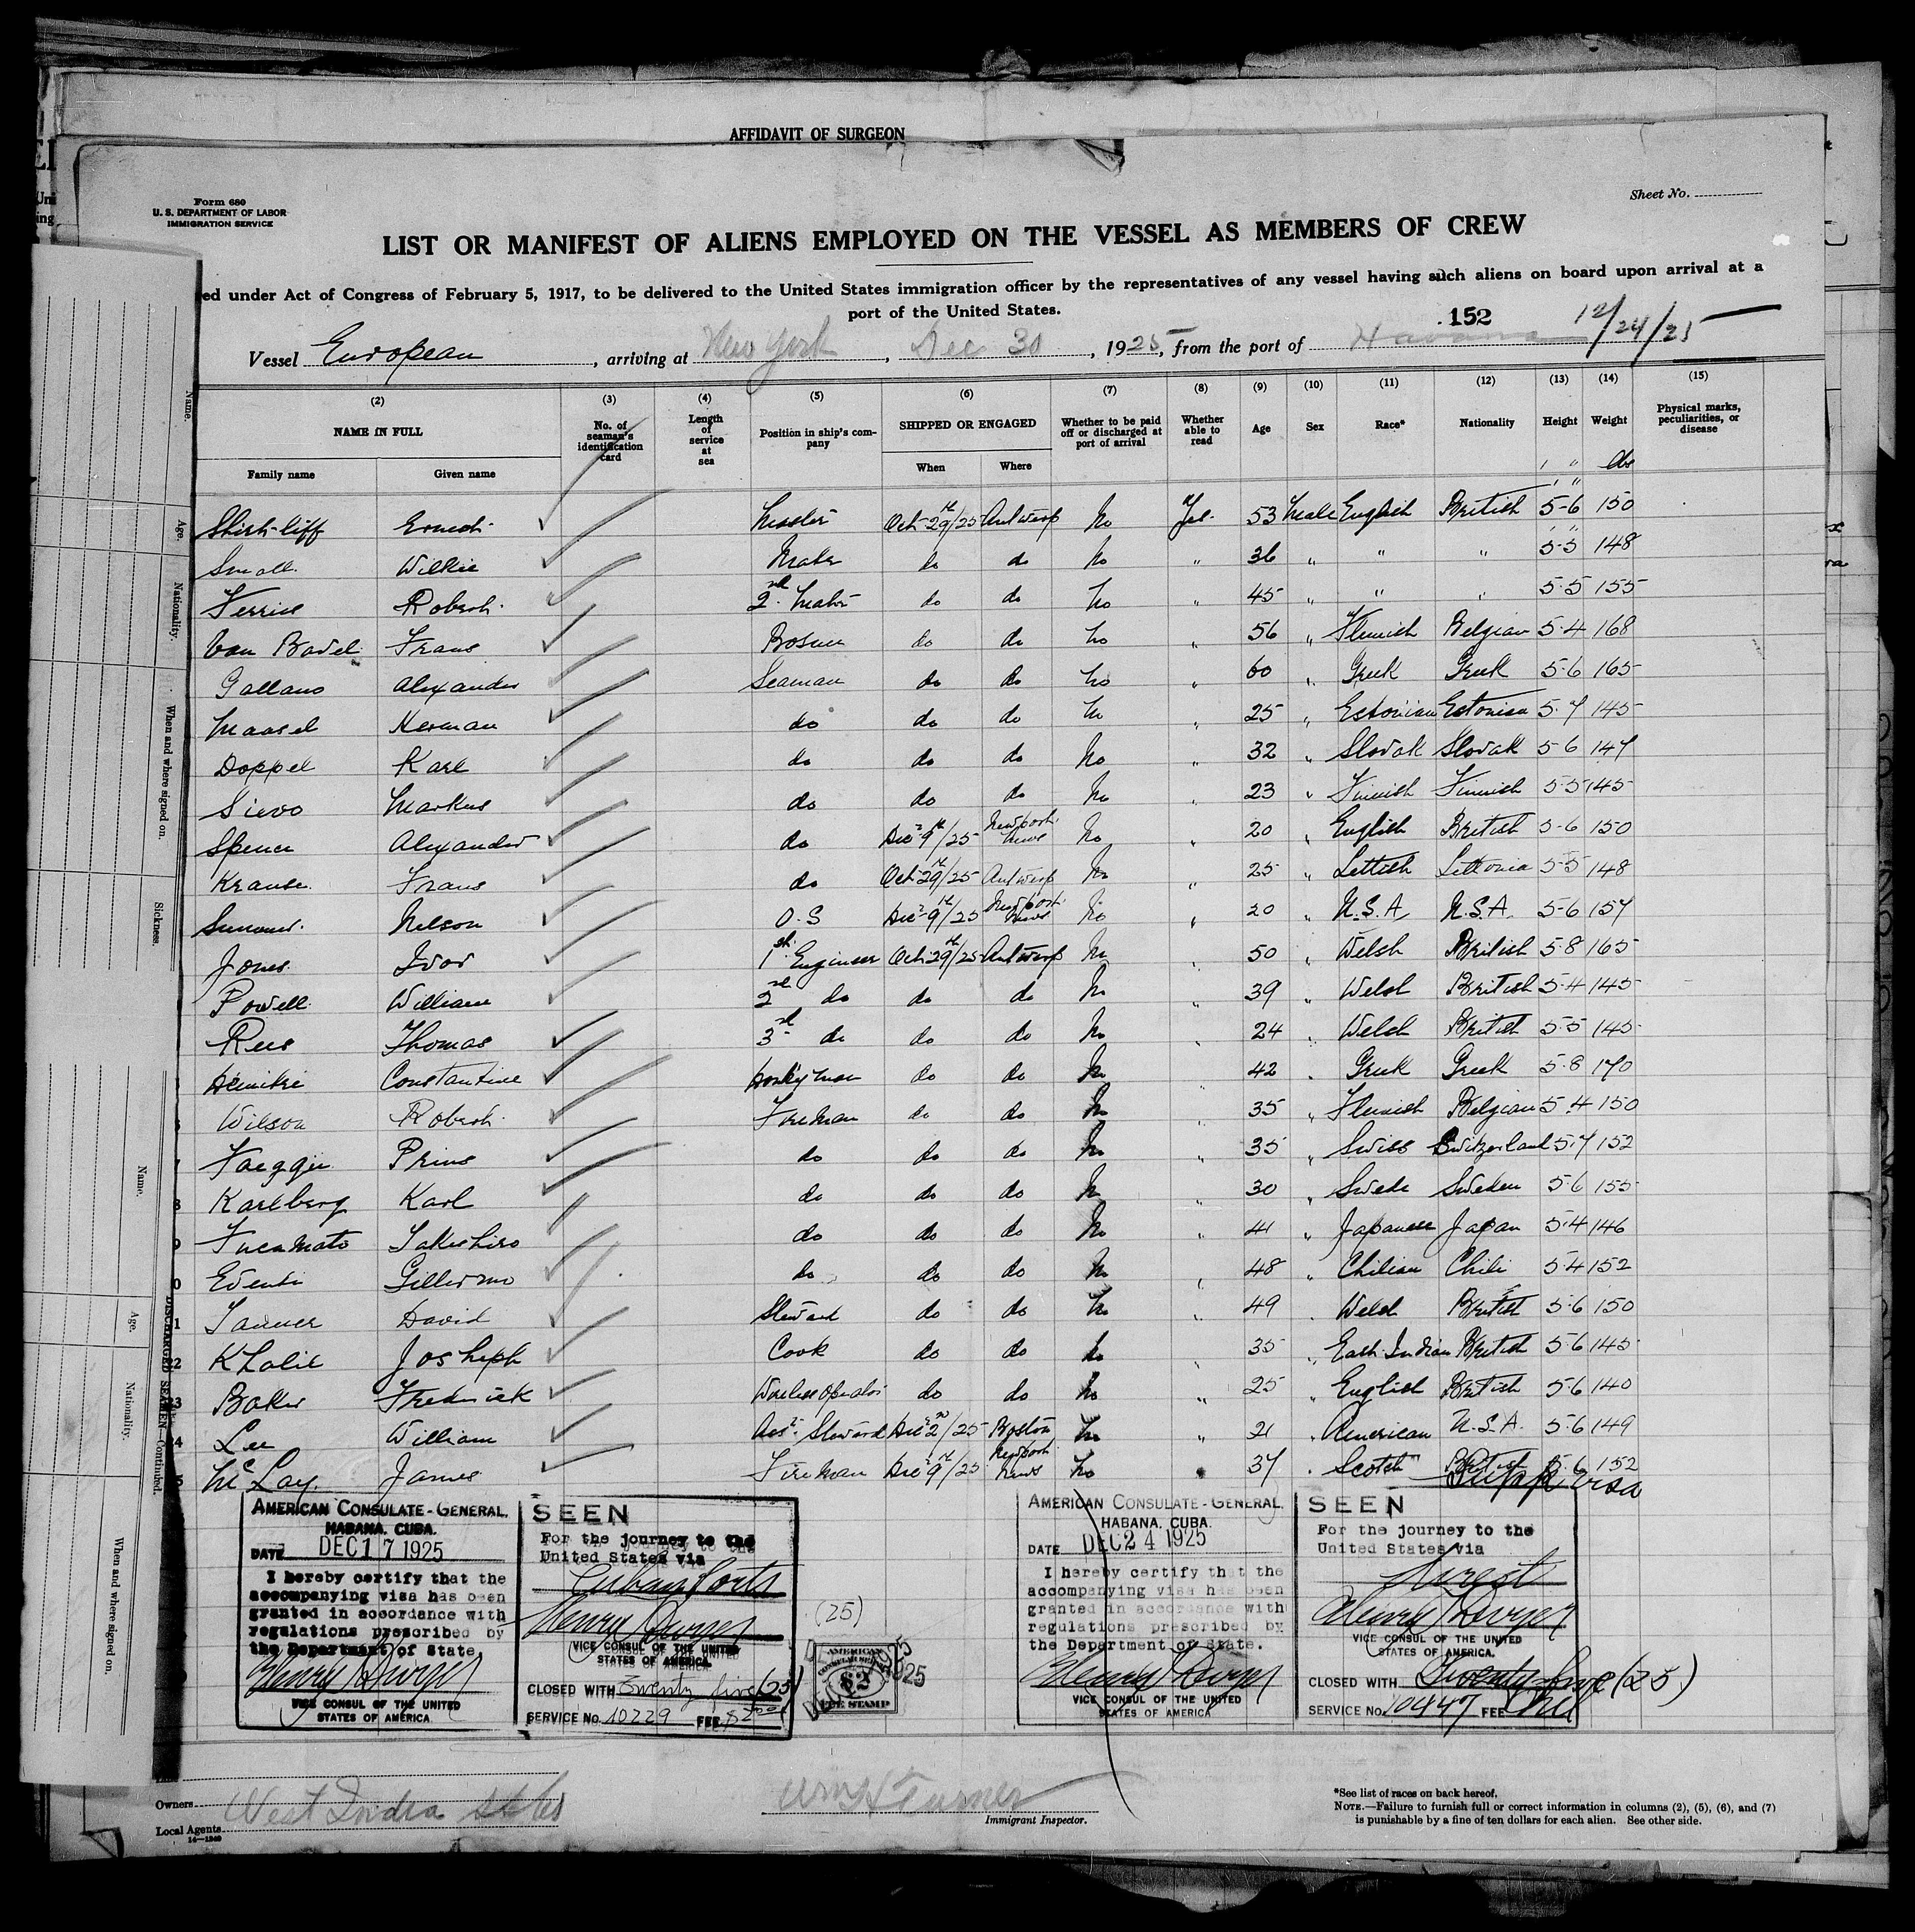 AFFIDAVIT OF SURGEON
Form 680
U. S. DEPARTMENT OF LABOR
IMMIGRATION SERVICE
Sheet No.
LIST OR MANIFEST OF ALIENS EMPLOYED ON THE VESSEL AS MEMBERS OF CREW
ed under Act of Congress of February 5, 1917, to be delivered to the United States immigration officer by the representatives of any vessel having such aliens on board upon arrival at a
port of the United States.
152 12/24/25
Vessel European, arriving at New York, Dec 30, 1925, from the port of Havana
(2) (3) (4) (5) (6) (7) (8) (9) (10) (11) (12) (13) (14) (15)
NAME IN FULL No. of seaman's identification card Length of service at sea Position in ship's company SHIPPED OR ENGAGED Whether to be paid off or discharged at port of arrival Whether able to read Age Sex Race* Nationality Height Weight Physical marks, peculiarities, or disease
Family name Given name When Where
Ernest Master Oct 29th/25 Antwerp No Yes 53 Male English British 5-6 150
Small Wilkie Mate do do No " 36 " " " 5-5 148
Robert 2nd Mate do do No " 45 " " " 5-5 155
Van Bavel Frans Bosun do do No " 56 " Flemish Belgian 5-4 168
Gallano Alexander Seaman do do No " 60 " Greek Greek 5-6 165
Maasel Herman do do do No " 25 " Estonian Estonian 5-7 145
Doppel Karl do do do No " 32 " Slovak Slovak 5-6 147
Sievo Markus do do do No " 23 " Finnish Finnish 5-5 145
Spence Alexander do Dec 9th/25 Newport News No " 20 " English British 5-6 150
Krause Frans do Oct 29th/25 Antwerp No " 25 " Lettish Lettonia 5-5 148
Nelson O.S Dec 9th/25 Newport News No " 20 " U.S.A. U.S.A. 5-6 157
Jones Ivor 1st Engineer Oct 29th/25 Antwerp No " 50 " Welsh British 5-8 165
Powell William 2nd do do do No " 39 " Welsh British 5-4 145
Rees Thomas 3rd do do do No " 24 " Welsh British 5-5 145
Demitri Constantine Donkeyman do do No " 42 " Greek Greek 5-8 170
Wilson Robert Fireman do do No " 35 " Flemish Belgian 5-4 150
Faeggie do do do No " 35 " Swiss Switzerland 5-7 152
Karlberg Karl do do do No " 30 " Swede Sweden 5-6 155
Fucamato Takeshiro do do do No " 41 " Japanese Japan 5-4 146
Gillermo do do do No " 48 " Chilian Chili 5-4 152
Tanner David Steward do do No " 49 " Welsh British 5-6 150
Khalil Josheph Cook do do No " 35 " East Indian British 5-6 145
Baker Frederick Wireless Operator do do No " 25 " English British 5-6 140
Lee William Ass. Steward Dec 2nd/25 Boston No " 21 " American U.S.A. 5-6 149
McLay James Fireman Dec 9th/25 Newport News No " 37 " Scotch British 5-6 152
Suppl visa
AMERICAN CONSULATE-GENERAL.
HABANA, CUBA.
DATE DEC 17 1925
I hereby certify that the
accompanying visa has been
granted in accordance with
regulations prescribed by
the Department of State
Henry Dwyer
VICE CONSUL OF THE UNITED
STATES OF AMERICA
SEEN
For the journey to the
United States via
Cuban Ports
Henry Dwyer
VICE CONSUL OF THE UNITED
STATES OF AMERICA.
CLOSED WITH Twenty five (25)
SERVICE No. 10229 FEE $2.00
(25)
AMERICAN
CONSULAR SERVICE
$2
FEE STAMP
AMERICAN CONSULATE-GENERAL.
HABANA, CUBA.
DATE DEC 24 1925
I hereby certify that the
accompanying visa has been
granted in accordance with
regulations prescribed by
the Department of State.
Henry Dwyer
VICE CONSUL OF THE UNITED
STATES OF AMERICA
SEEN
For the journey to the
United States via
Direct
Henry Dwyer
VICE CONSUL OF THE UNITED
STATES OF AMERICA.
CLOSED WITH Twenty five (25)
SERVICE No. 10447 FEE Nil
Owners West India
Local Agents
14-1249
Wm H Turner
Immigrant Inspector.
*See list of races on back hereof.
NOTE.—Failure to furnish full or correct information in columns (2), (5), (6), and (7)
is punishable by a fine of ten dollars for each alien. See other side.
Name.
Age.
Nationality.
When and where signed on.
Sickness.
Name.
Age.
Nationality.
When and where signed on.
DISCHARGED SEAMEN—Continued.